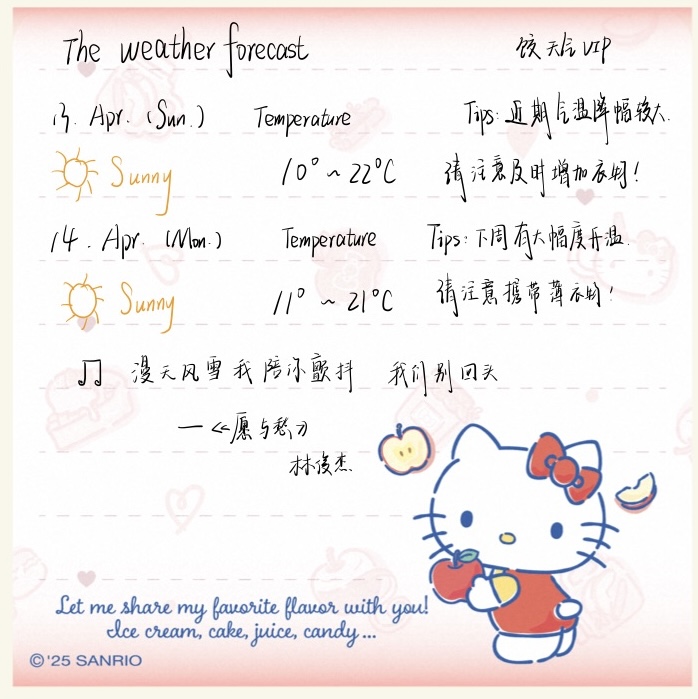 The weather forecast 饺天气VIP
13. Apr. (Sun.) Temperature Tips: 近期气温降幅较大.
Sunny 10° ~ 22°C 请注意及时增加衣物!
14. Apr. (Mon.) Temperature Tips: 下周有大幅度升温.
Sunny 11° ~ 21°C 请注意携带薄衣物!
♫ 漫天风雪我陪你颤抖 我们别回头
—《愿与愁》
林俊杰
Let me share my favorite flavor with you!
Ice cream, cake, juice, candy...
©'25 SANRIO